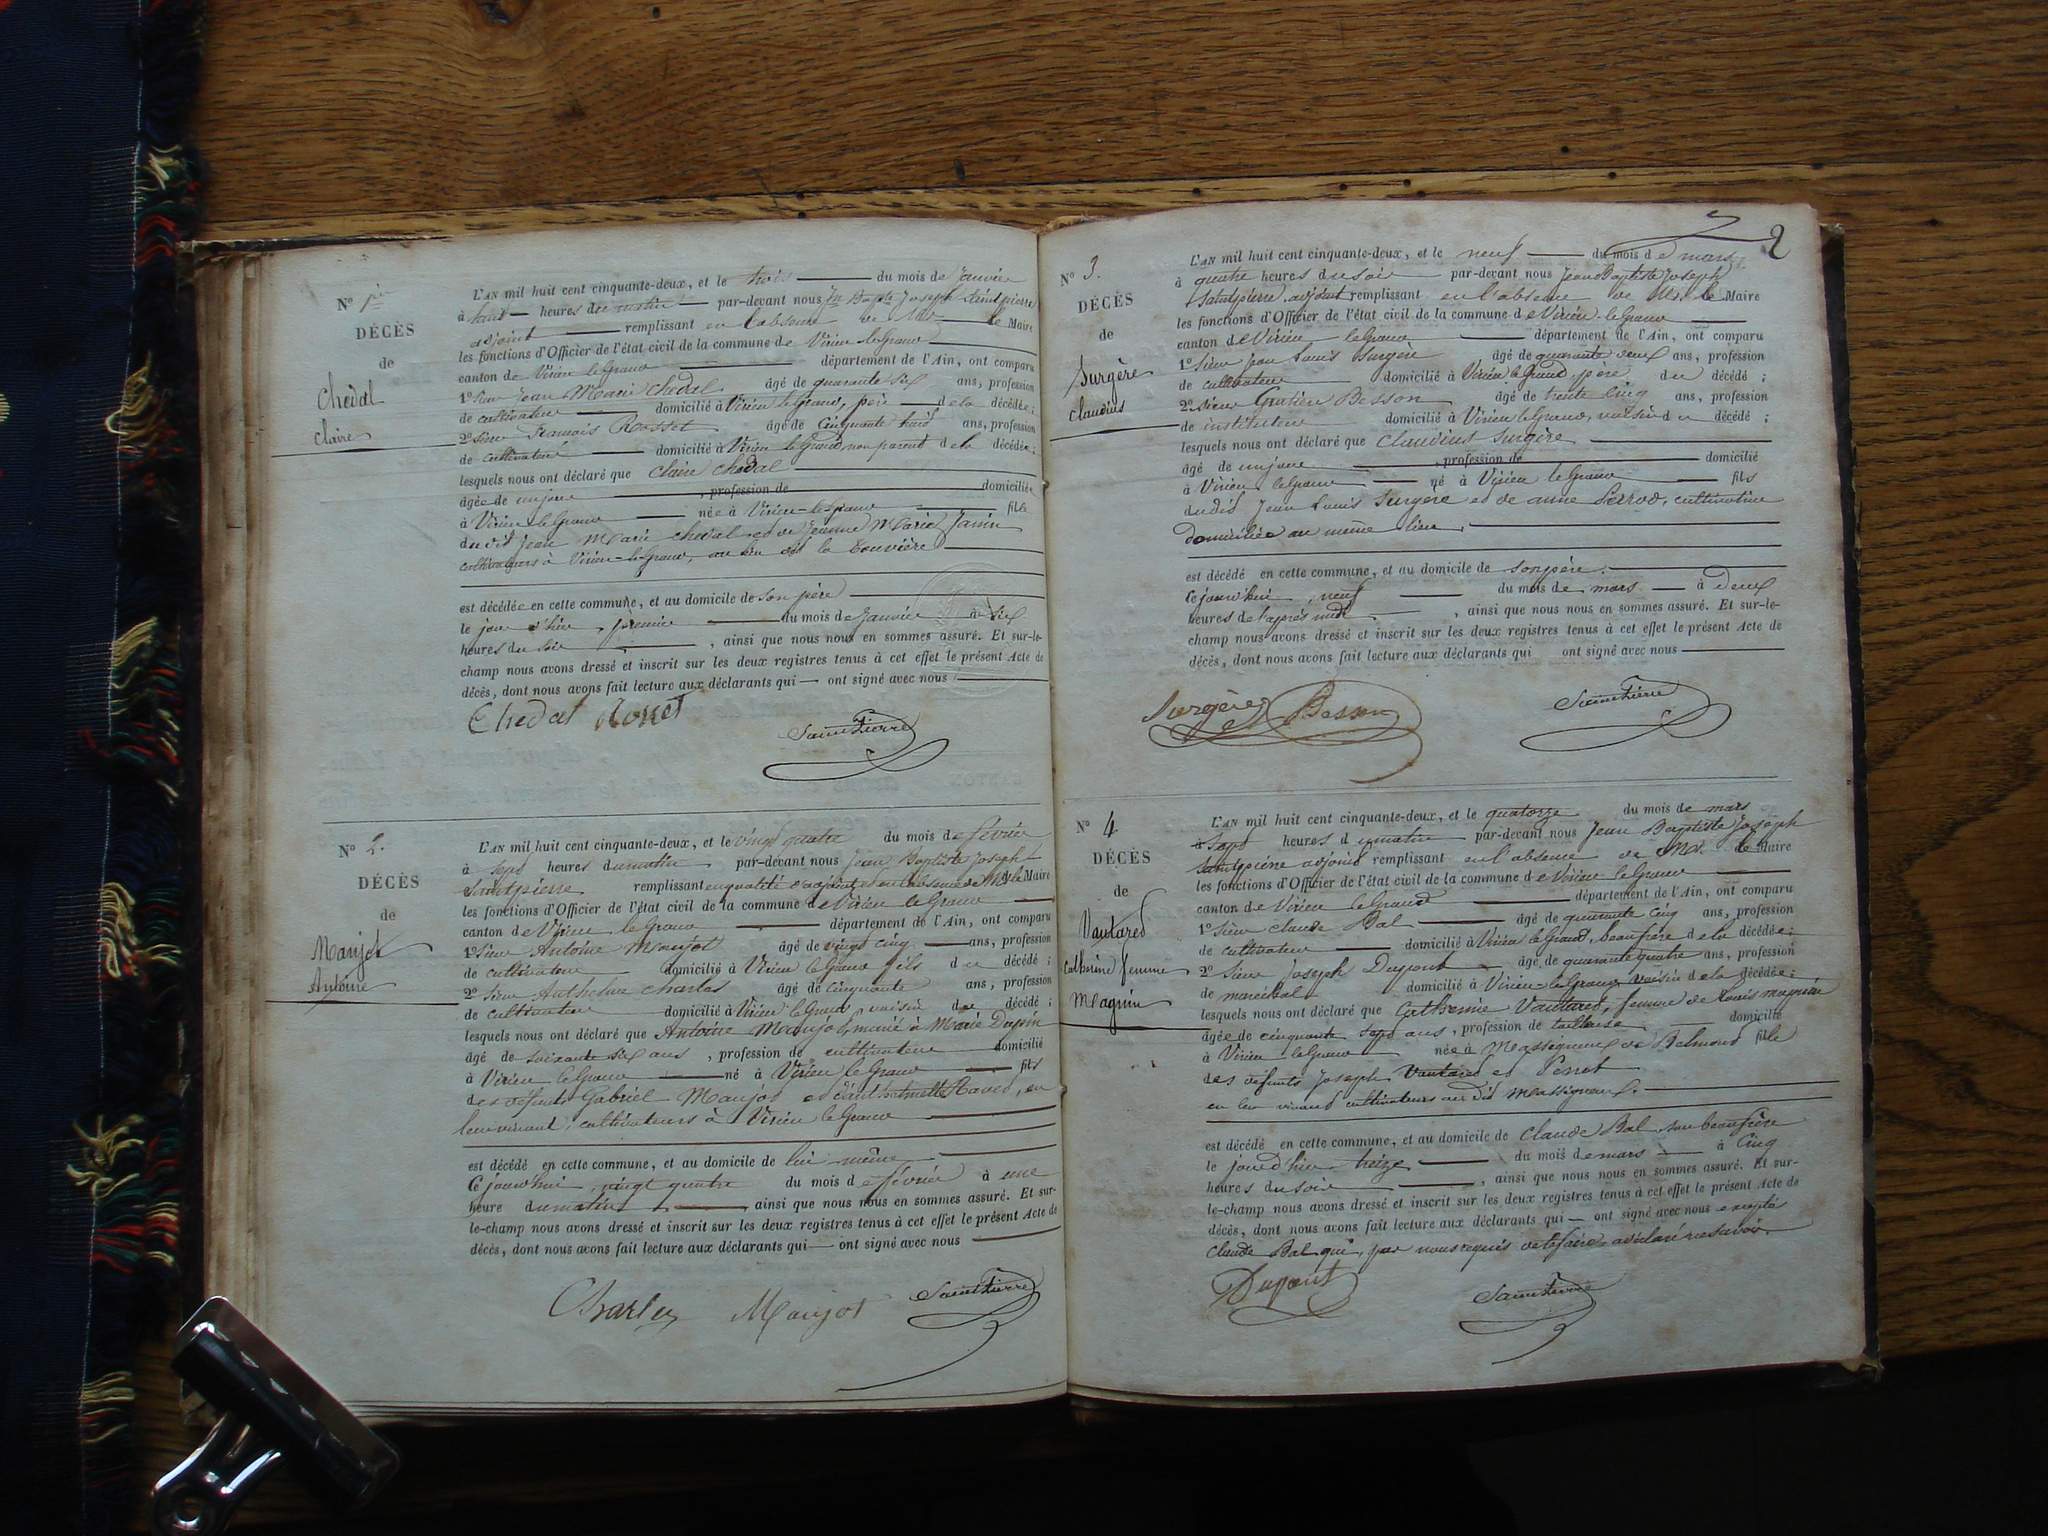 N° 1er
DÉCÈS
de
Chedal
Claire
L'AN mil huit cent cinquante-deux, et le trois du mois de janvier
à huit heures du matin par-devant nous Jn Bapte Joseph Saintpierre
adjoint remplissant en l'absence de Mr le Maire
les fonctions d'Officier de l'état civil de la commune de Virieu le Grand
canton de Virieu le Grand département de l'Ain, ont comparu
1° Sieur Jean Marie Chedal âgé de quarante six ans, profession
de cultivateur domicilié à Virieu le Grand, père de la décédée;
2° Sieur François Rosset âgé de cinquante huit ans, profession
de cultivateur domicilié à Virieu le Grand, non parent de la décédée;
lesquels nous ont déclaré que Claire Chedal
âgée de un jour , profession de domiciliée
à Virieu le Grand née à Virieu-le-Grand fille
dudit Jean Marie Chedal et de Jeanne Marie Janin
cultivateurs à Virieu-le-Grand, au lieu dit la
est décédée en cette commune, et au domicile de son père
le jour d'hier, premier du mois de janvier à six
heures du soir , ainsi que nous nous en sommes assuré. Et sur-le-
champ nous avons dressé et inscrit sur les deux registres tenus à cet effet le présent Acte de
décès, dont nous avons fait lecture aux déclarants qui ont signé avec nous
Chedal Rosset
SaintPierre
N° 2.
DÉCÈS
de
Maujot
Antoine
L'AN mil huit cent cinquante-deux, et le vingt quatre du mois de février
à sept heures du matin par-devant nous Jean Baptiste Joseph
Saintpierre remplissant en qualité d'adjoint et en l'absence de Mr le Maire
les fonctions d'Officier de l'état civil de la commune de Virieu le Grand
canton de Virieu le Grand département de l'Ain, ont comparu
1° Sieur Antoine Maujot âgé de vingt cinq ans, profession
de cultivateur domicilié à Virieu le Grand fils du décédé;
2° Sieur Anthelme Charles âgé de cinquante ans, profession
de cultivateur domicilié à Virieu le Grand voisin du décédé;
lesquels nous ont déclaré que Antoine Maujot, marié à Marie Dupin
âgé de soixante six ans , profession de cultivateur domicilié
à Virieu le Grand né à Virieu le Grand fils
des défunts Gabriel Maujot et d'Anthelmette, en
leur vivant, cultivateurs à Virieu le Grand
est décédé en cette commune, et au domicile de lui même
Ce jourd'hui, vingt quatre du mois de février à une
heure du matin , ainsi que nous nous en sommes assuré. Et sur-
le-champ nous avons dressé et inscrit sur les deux registres tenus à cet effet le présent Acte de
décès, dont nous avons fait lecture aux déclarants qui ont signé avec nous
Charles Maujot SaintPierre
2
N° 3.
DÉCÈS
de
Surgère
Claudius
L'AN mil huit cent cinquante-deux, et le neuf du mois de mars
à quatre heures du soir par-devant nous Jean Baptiste Joseph
Saintpierre, adjoint remplissant en l'absence de Mr le Maire
les fonctions d'Officier de l'état civil de la commune de Virieu-le-Grand
canton de Virieu le Grand département de l'Ain, ont comparu
1° Sieur Jean Louis Surgère âgé de quarante deux ans, profession
de cultivateur domicilié à Virieu le Grand, père du décédé;
2° Sieur Gratien Besson âgé de trente cinq ans, profession
de instituteur domicilié à Virieu le Grand, voisin du décédé;
lesquels nous ont déclaré que Claudius Surgère
âgé de un jour , profession de domicilié
à Virieu le Grand né à Virieu le Grand fils
dudit Jean Louis Surgère et de Anne, cultivatrice
domiciliée au même lieu.
est décédé en cette commune, et au domicile de son père.
Ce jourd'hui, neuf du mois de mars à deux
heures de l'après midi , ainsi que nous nous en sommes assuré. Et sur-le-
champ nous avons dressé et inscrit sur les deux registres tenus à cet effet le présent Acte de
décès, dont nous avons fait lecture aux déclarants qui ont signé avec nous
Surgère Besson SaintPierre
N° 4
DÉCÈS
de
Vautaret
Catherine femme
Magnin
L'AN mil huit cent cinquante-deux, et le quatorze du mois de mars
à sept heures du matin par-devant nous Jean Baptiste Joseph
Saintpierre adjoint remplissant en l'absence de Mr. le Maire
les fonctions d'Officier de l'état civil de la commune de Virieu le Grand
canton de Virieu le Grand département de l'Ain, ont comparu
1° Sieur Claude Bal âgé de quarante cinq ans, profession
de cultivateur domicilié à Virieu le Grand, beaufrère de la décédée;
2° Sieur Joseph Dupont âgé de quarante quatre ans, profession
de maréchal domicilié à Virieu-le-Grand voisin de la décédée;
lesquels nous ont déclaré que Catherine Vautaret, femme de Louis Magnin
âgée de cinquante sept ans , profession de tailleuse domicilié
à Virieu le Grand née à Massigneux de Belmont fille
des défunts Joseph Vautaret et Perret
en leur vivant cultivateurs au dit Massigneux.
est décédé en cette commune, et au domicile de Claude Bal, son beaufrère
le jour d'hier treize du mois de mars à cinq
heures du soir , ainsi que nous nous en sommes assuré. Et sur-
le-champ nous avons dressé et inscrit sur les deux registres tenus à cet effet le présent Acte de
décès, dont nous avons fait lecture aux déclarants qui ont signé avec nous excepté
Claude Bal qui, par nous requis de le faire a déclaré ne savoir.
Dupont SaintPierre